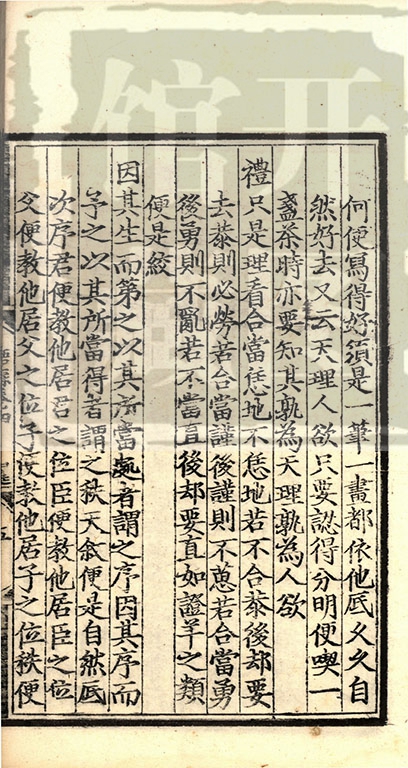 何便寫得好須是一筆一畫都依他底久久自
然好去又云天理人欲只要認得分明便喫一
盞茶時亦要知其孰為天理孰為人欲
禮只是理看合當恁地不恁地若不合恭後却要
去恭則必勞若合當謹後謹則不葸若合當勇
後勇則不亂若不當直後却要直如證羊之類
便是絞
因其生而第之以其所當處者謂之序因其序而
予之以其所當得者謂之秩天敘便是自然底
次序君便教他居君之位臣便教他居臣之位
父便教他居父之位子便教他居子之位秩便